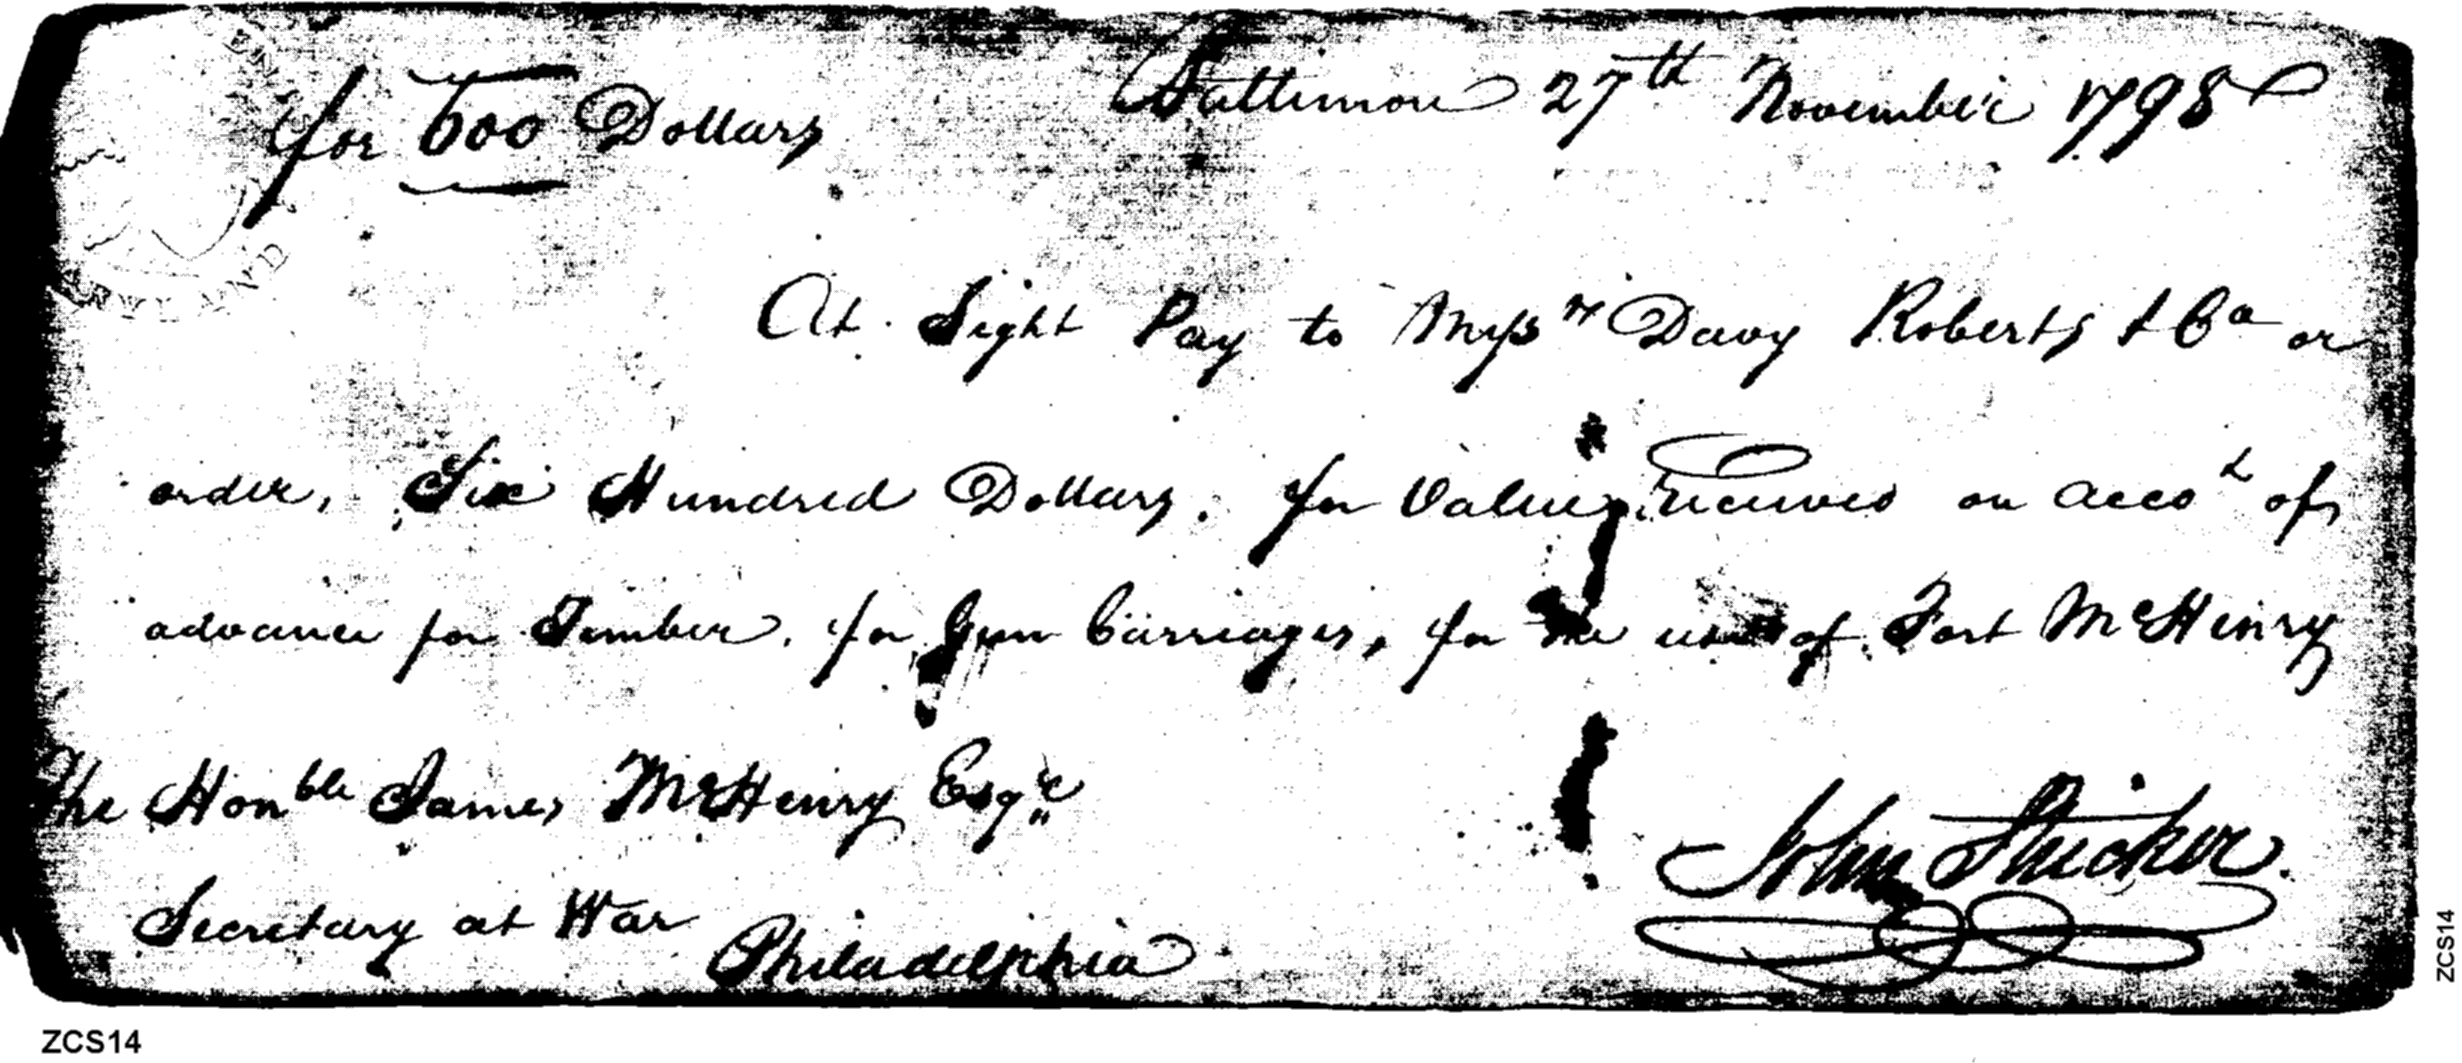 for 600 Dollars
Baltimore 27th November 1798
At Sight Pay to Messrs Davy Roberts & Co or
order, Six Hundred Dollars. for Value received on accot of
advance for Timber, for Gun Carriages, for the use of Fort McHenry
The Honble James McHenry Esqre
Secretary at War
Philadelphia
John Stricker.
MARYLAND
ZCS14
ZCS14